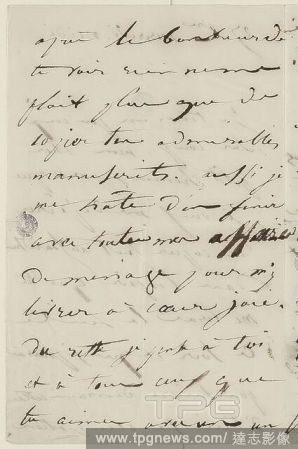 après le bonheur de
te voir rien ne me
plait plus que de
copier tes admirables
manuscrits. aussi je
me hâte d'en finir
avec toutes mes affaires
de ménage pour m'y
livrer à cœur joie.
Du reste je pense à toi
et à tous ceux que
tu aimes avec un
TPG
www.tpgnews.com / 達志影像